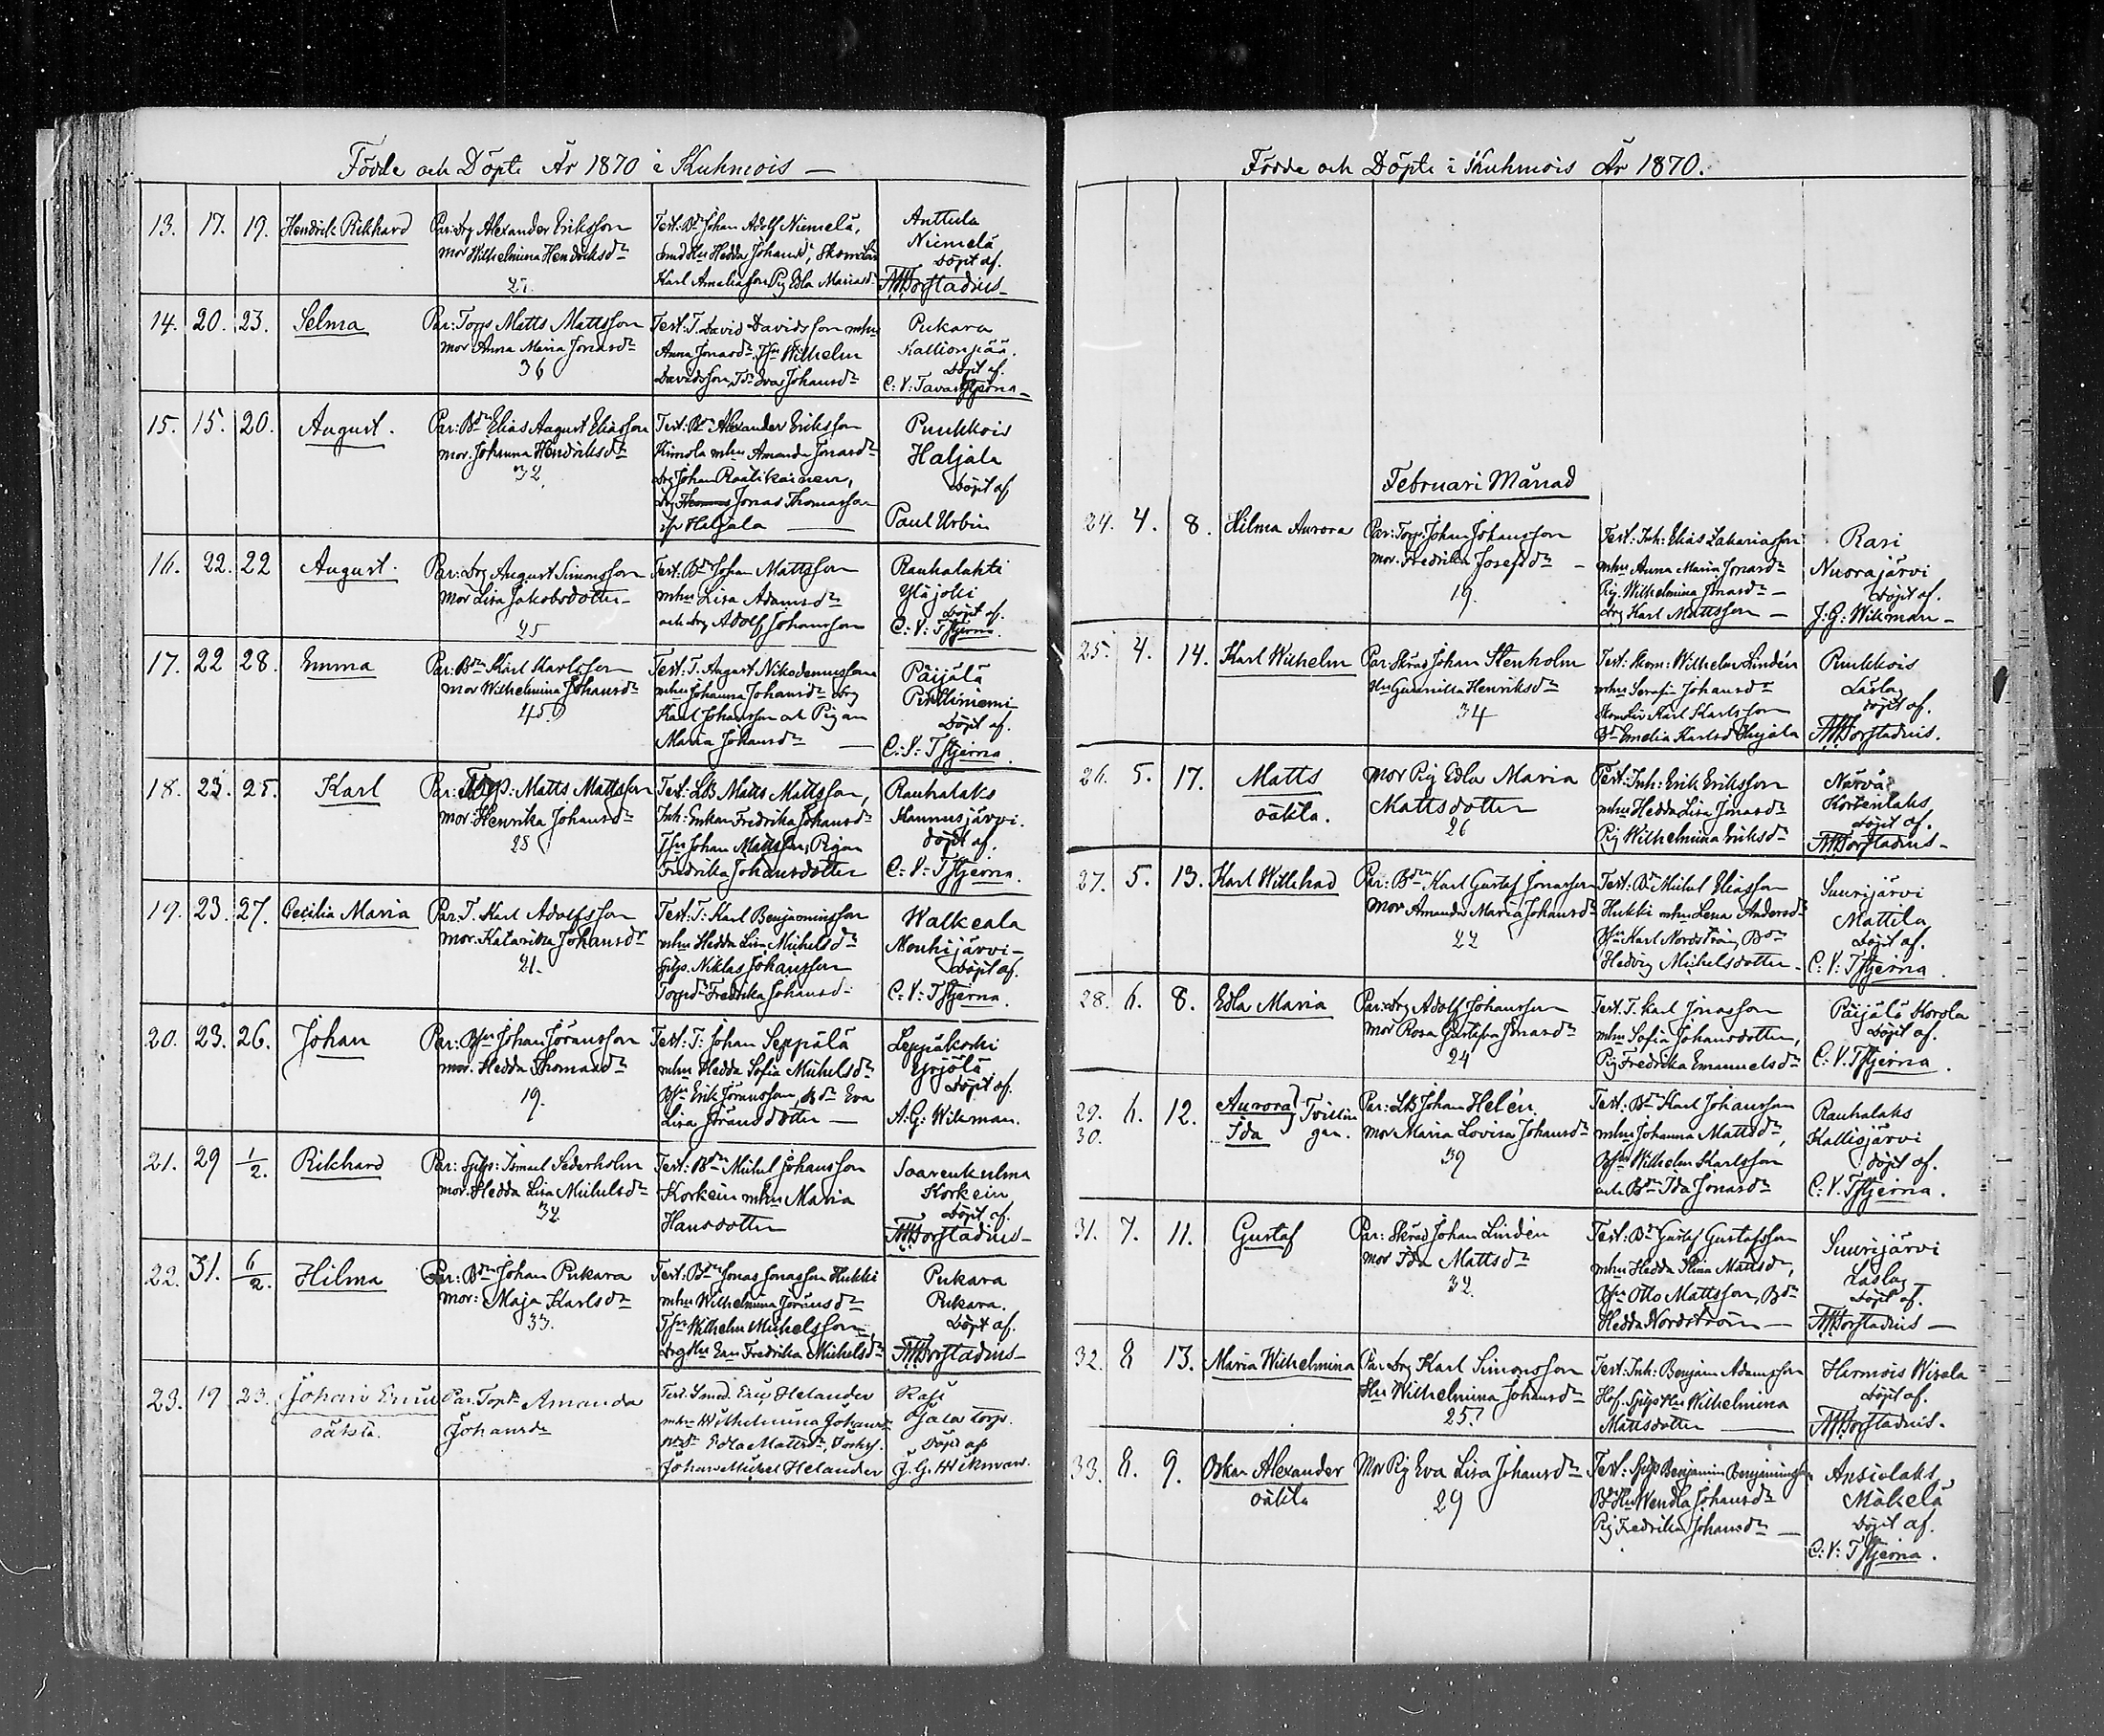 Födde och Döpte År 1870 i Kuhmois —
13. 17. 19. Hendrik Rikhard
Par: Drg Alexander Eriksson
mor Wilhelmina Hendriksdr
27.
Test: Bd Johan Adolf Niemelä,
Hedda Johansdr,
Karl Amaliasson Pig Edla Mariasdr
Anttula
Niemelä
Döpt af.
Forstadius
14. 20. 23. Selma
Par: Torp Matts Mattsson
mor Anna Maria Jonasdr
36
Test: T. David Davidsson mhu
Anna Jonasdr, Tsn Wilhelm
Davidsson, Tdr Johansdr
Pukara
Kallionpää.
Döpt af.
C: V: Tavaststjerna
15. 15. 20. August.
Par: Bdn Elias August Eliasson
mor. Johanna Hendriksdr
32.
Test: Bdn Alexander Eriksson
mhu Amanda Jonasdr
Drg Johan Räätikäinen,
Drg Jonas Thomasson
Haljala
Puukkois
Haljala
Döpt af
Paul Urbin
16. 22. 22 August.
Par: Drg August Simonsson
Mor Lisa Jakobsdotter
25
Test. Bdn Johan Mattsson
mhu Lisa Adamsdr
och drg Adolf Johansson
Rauhalahti
Yläjoki
Döpt af.
C: V: Tstjerna.
17. 22 28. Emma
Par: Bdn Karl Karlsson
Mor Wilhelmina Johansdr
45.
Test: T. August Nikodemusson
mhu Johanna Johansdr drg
Karl Johansson och Pigan
Maria Johansdr
Päijälä
Döpt af.
C: V: Tstjerna.
18. 23. 25. Karl
Par: Torp: Matts Mattsson
mor: Henrika Johansdr
28
Test: LB Matts Mattsson,
Inh: Enkan Fredrika Johansdr
Tsn Johan Mattsson, Pigan
Fredrika Johansdotter
Rauhalaks
Hannusjärvi.
döpt af.
C: V: Tstjerna.
19. 23. 27. Cecilia Maria
Par: T. Karl Adolfsson
mor. Katarika Johansdr
21.
Test: T: Karl Benjaminsson
mhu Hedda Lisa Michelsdr
Spgs. Niklas Johansson
Torpdr Fredrika Johansdr
Walkeala
Nouhijärvi
Döpt af.
C: V: Tstjerna.
20. 23. 26. Johan
Par: Bsn Johan Göransson
mor. Hedda Thomasdr
19.
Test: T: Johan Seppälä
mhu Hedda Sofia Michelsdr
Bsn Erik Göransson, Bdr Eva
Lisa Göransdotter
Leppäkoski
Yrjölä
Döpt af.
A: G: Wikman.
21. 29 1/2. Rikhard
Par: Spgs: Ismael Sederholm
mor: Hedda Lisa Michelsdr
32.
Test: Bdn Michel Johansson
Korkein mhu Maria
Hansdotter
Saarenkulma
Korkein
Döpt af.
Forstadius
22. 31. 6/2. Hilma
Par: Bdn Johan Pukara
mor: Maja Karlsdr
33.
Test: Bdn Jonas Jonasson Hukki
mhu Wilhelmina Göransdr
Tsn Wilhelm Michelsson,
Drghu Eva Fredrika Michelsdr
Pukara
Pukara.
Döpt af.
Forstadius
23. 19 23. Johan Emil
oäkta.
Par. Torpdr Amanda
Johansdr
Test. Smed. Eric Helander
mhu Wilhelmina Johansdr
Edla Mattsdr,
Johan Michel Helander
Rasi
Ojala torp.
Döpt af
J. G. Wikman.
Födde och Döpte i Kuhmois År 1870.
Februari Månad
24. 4. 8. Hilma Aurora
Par: Torp. Johan Johansson
mor. Fredrika Josefsdr
19.
Test: Inh: Elias Zakariasson
mhu Anna Maria Jonasdr
Pig. Wilhelmina Jonasdr
Drg Karl Mattsson
Rasi
Nuorajärvi
Döpt af.
J. G: Wikman
25. 4. 14. Karl Wilhelm
Par: Skräd Johan Stenholm
Hu Gunnilla Henriksdr
34
Test: Skom: Wilhelm Lindén
mhu Serafia Johansdr
Karl Karlsson
Bdr Emelia Karlsdr
Puukkois
Laslag
Döpt af.
Forstadius.
26. 5. 17. Matts
oäkta.
Mor Pig Edla Maria
Mattsdotter
26
Test: Inh: Erik Eriksson
mhu Hedda Lisa Jonasdr
Pig Wilhelmina Eriksdr
Närvä
Kortenlaks
döpt af.
Forstadius
27. 5. 13. Karl Willehad
Par: Bdn Karl Gustaf Jonasson
Mor Amanda Maria Johansdr
22
Test: Bdn Michel Eliasson
Hukki mhu Lena Andersdr
Bsn Karl Nordström, Bdr
Hedvig Michelsdotter
Suurijärvi
Mattila
Döpt af.
C: V: Tstjerna.
28. 6. 8. Edla Maria
Par: Drg Adolf Johansson
Mor Rosa Gustafva Jonasdr
24
Test. T. Karl Jonasson
mhu Sofia Johansdotter,
Pig Fredrika Emanuelsdr
Päijälä Horola
Döpt af.
C: V. Tstjerna.
29.
30. 6. 12. Aurora } Tvillin
Ida } gar.
Par: LB Johan Helén
Mor Maria Lovisa Johansdr
39
Test. Bdn Karl Johansson
mhu Johanna Mattsdr,
Bsn Wilhelm Karlsson
och Bdr Ida Jonasdr
Rauhalaks
Kallisjärvi
döpt af.
C: V. Tstjerna.
31. 7. 11. Gustaf
Par: Skräd Johan Lindén
Mor Ida Mattsdr
32.
Test: Bdn Gustaf Gustafsson
mhu Hedda Stina Mattsdr,
Bsn Otto Mattsson, Bdr
Hedda Nordström
Suurijärvi
Laslag
Döpt af.
Forstadius
32. 8 13. Maria Wilhelmina
Par Drg Karl Simonsson
Hu Wilhelmina Johansdr
25.
Test: Inh: Benjamin Adamsson
Hof. Spgshu Wilhelmina
Mattsdotter
Harmois Wirala
Döpt af.
Forstadius.
33. 8. 9. Oskar Alexander
oäkta
Mor Pig Eva Lisa Johansdr
29
Test: Spgs Benjamin Benjaminsson
Bdhu Wendla Johansdr
Pig Fredrika Johansdr
Ansiolaks
Mäkelä
Döpt af.
C: V: Tstjerna.